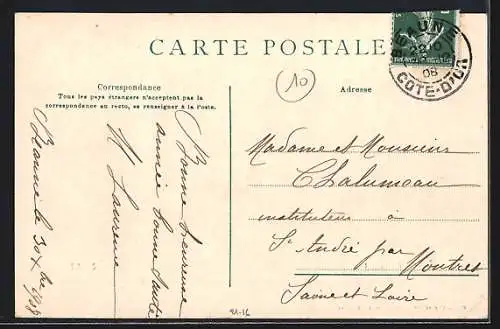 CARTE POSTALE
Correspondance
Tous les pays étrangers n'acceptent pas la
correspondance au recto, se renseigner à la Poste.
Adresse
10
BEAUNE
08
COTE-D'OR
Bonne heureuse
année bonne santé
H Laurence
Beaune le 30
Madame et Monsieur
Chalumeau
instituteurs à
St André par
Montret
Saône et Loire
21-16